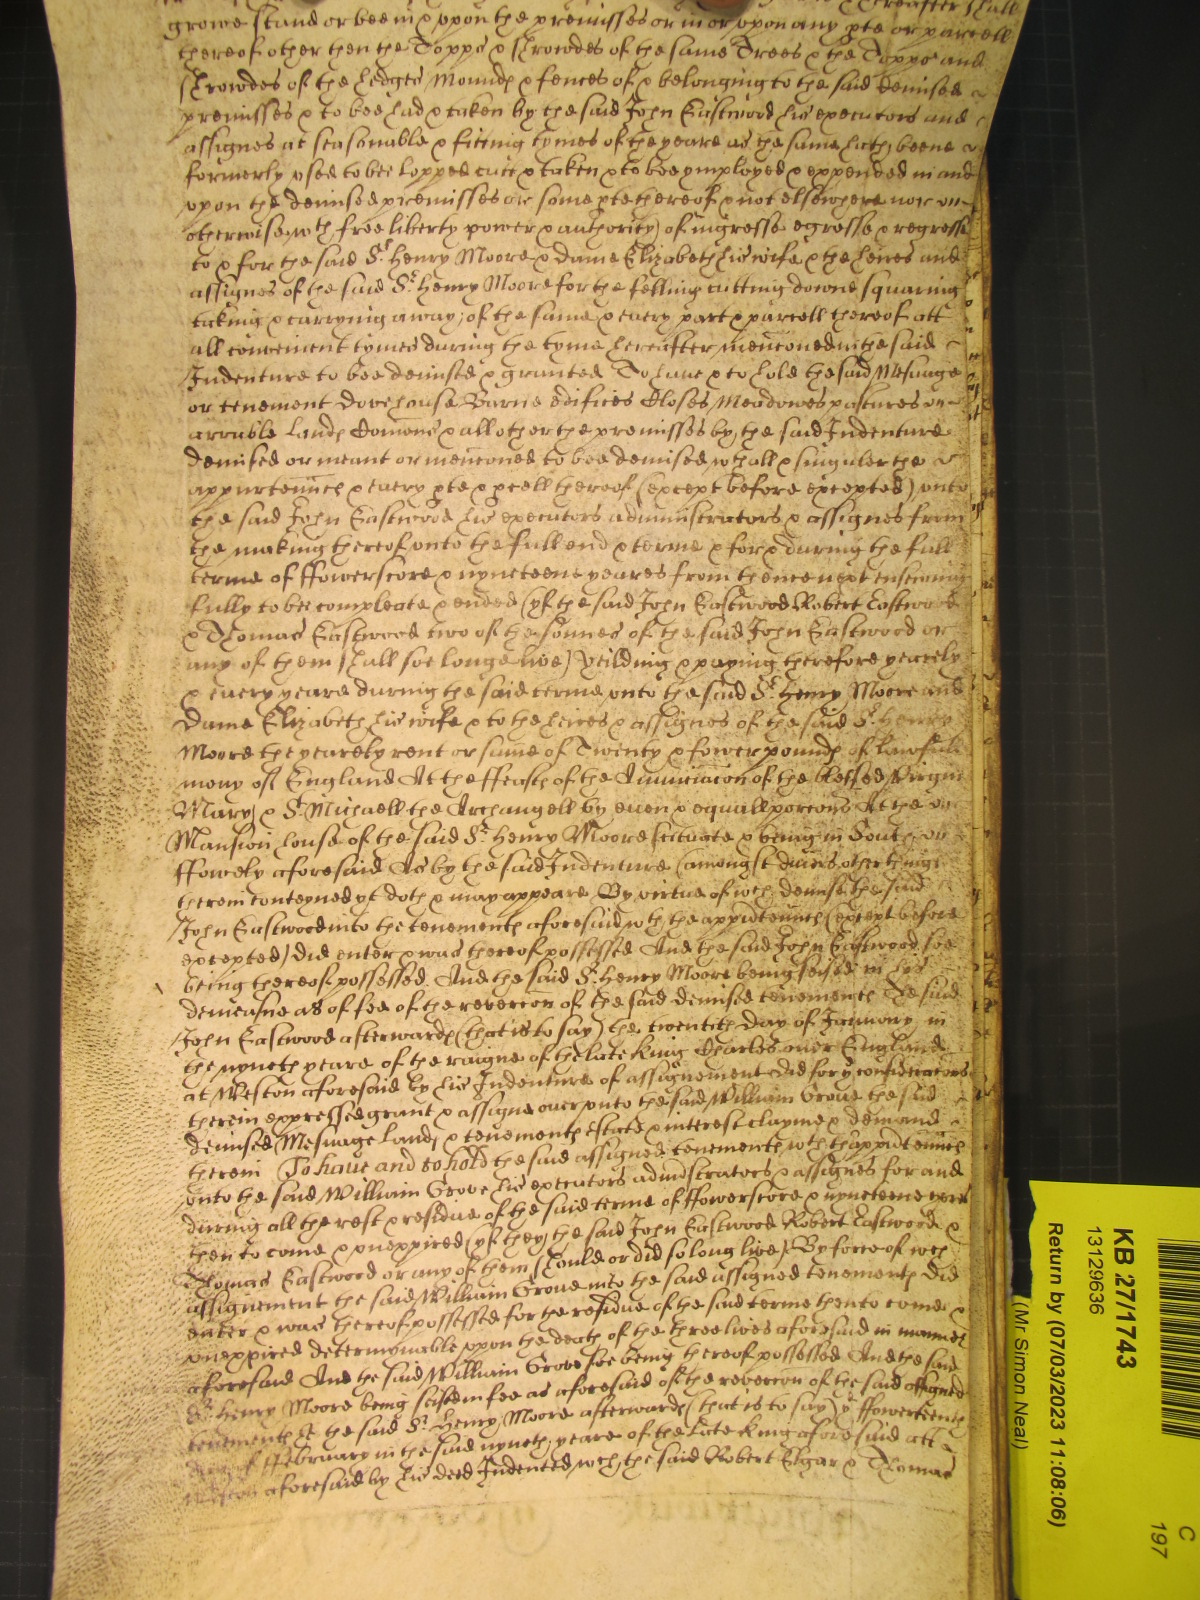 hereafter shall
growe stand or bee in & vpon the premisses or in or vpon any pte or parcell
thereof other then the Topps & Shrowdes of the same Trees & the Topps and
Shrowdes of the hedges Mounds & fences of & belonging to the said demised
premisses & to bee had & taken by the said John Eastwood his executors and
assignes at seasonable & fitting tymes of the yeare as the same hath beene
formerly vsed to bee lopped cutt & taken & to bee ymployed & expended in and
vpon the demised premisses or some pte thereof & not elsewhere nor
otherwise, wth free liberty power & authority of ingresse egresse & regresse
to & for the said Sr. Henry Moore & Dame Elizabeth his wife & the heires and
assignes of the said Sr. Henry Moore for the felling cutting downe squaring
taking & carrying away of the same & every part & parcell thereof att
all convenient tymes during the tyme hereafter mencioned in the said
Indenture to bee demised & granted To have & to hold the said Mesuage
or tenement Dovehouse Barne edifices Closes Meadowes pastures
arrable lands Comons & all other the premisses by the said Indenture
demised or meant or mencioned to bee demised wth all & singuler the
appurtennces & every pte & pcell thereof (except before excepted) vnto
the said John Eastwood his executors administrators & assignes from
the making thereof vnto the full end & terme & for & during the full
terme of ffowerscore & nyneteene yeares from thence next ensewing
fully to bee compleate & ended (yf the said John Eastwood Robert Eastwood
& Thomas Eastwood two of the sonnes of the said John Eastwood or
any of them shall soe longe live) Yeilding & paying therefore yearely
& every yeare during the said terme vnto the said Sr. Henry Moore and
Dame Elizabeth his wife & to the heires & assignes of the said Sr. Henry
Moore the yearely rent or same of Twenty & fower pounds of lawfull
mony of England At the ffeasts of the Anunciacon of the blessed Virgin
Mary & St. Michaell the Archangell by even & equall porcons At the
Mansion house of the said Sr. Henry Moore scituate & being in South
ffowely aforesaid As by the said Indenture (amongst divers other things
therein conteyned yt doth & may appeare By virtue of wch demise the said
John Eastwood into the tenements aforesaid wth the appurtennces (except before
excepted) did enter & was thereof possessed And the said John Eastwood soe
being thereof possessed And the said Sr. Henry Moore being seised in his
demeasne as of fee of the revercon of the said demised tenements The said
John Eastwood afterwards (that is to say) the twentith Day of January in
the nyneth yeare of the raigne of the late King Charles over England
at Weston aforesaid by his Indenture of assignement did for ye consideracons
therein expressed grant & assigne over vnto the said William Grove the said
demised Mesuage lands & tenements estate & interest clayme & demand
therein To have and to hold the said assigned tenements wth th'appurtennces
vnto the said William Grove his executors admistrators & assignes for and
during all the rest & residue of the said terme of ffowerscore & nyneteene yeres
then to come & vnexpired (yf they the said John Eastwood Robert Eastwood &
Thomas Eastwood or any of them should or did so long live) By force of wch
assignement the said William Grove into the said assigned tenements did
enter & was thereof possessed for the residue of the said terme then to come &
vnexpired determynable vpon the death of the three lives aforesaid in manner
aforesaid And the said William Grove soe being thereof possessed And the said
Sr. Henry Moore being seised in fee as aforesaid of the revercon of the said assigned
tenements he the said Sr. Henry Moore afterwards (that is to say) ye ffowerteenth
day of ffebruary in the said nyneth yeare of the Late King aforesaid att
Weston aforesaid by his deed Indented wch the said Robert Elgar & Thomas
KB 27/1743
13129636
Return by (07/03/2023 11:08:06)
(Mr Simon Neal)
C
197